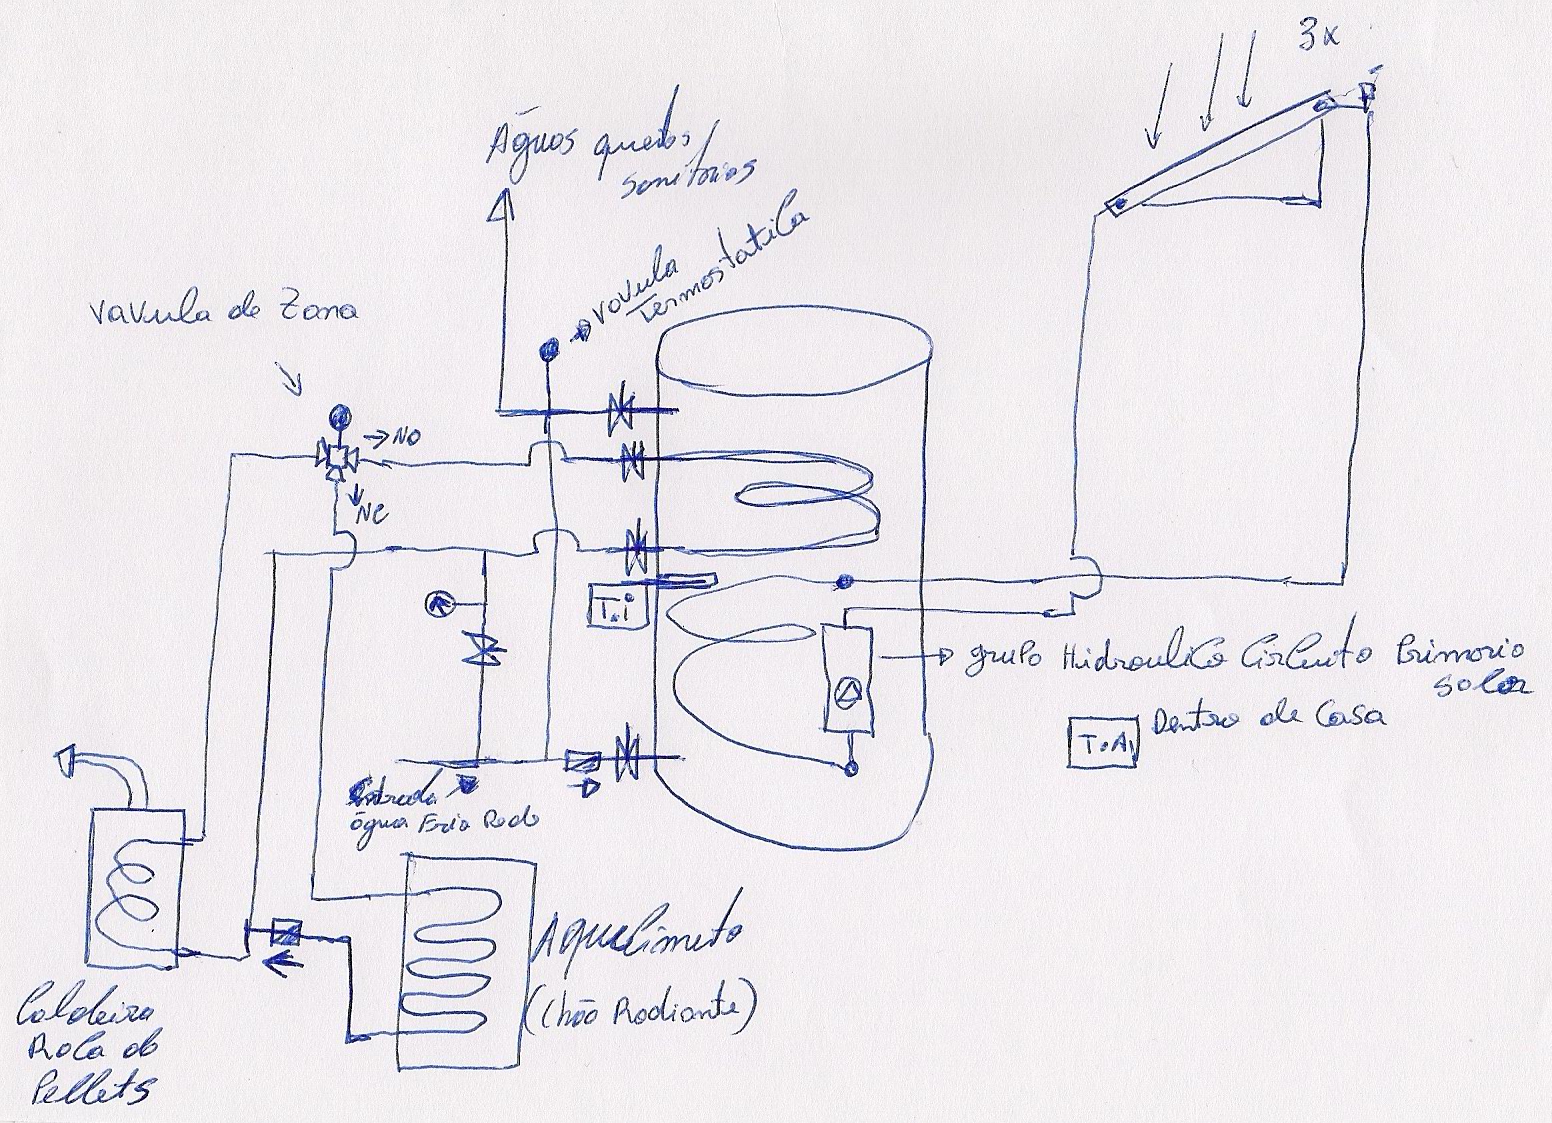 3x
Águas quentes
sanitárias
vavula
Termostatica
vavula de Zona
NO
NC
T.i
grupo Hidraulico Circuito Primario
Solar
T.A, Dentro de Casa
Entrada
água Fria Rede
Aquecimeto
(Chão Radiante)
Caldeira
Pellets